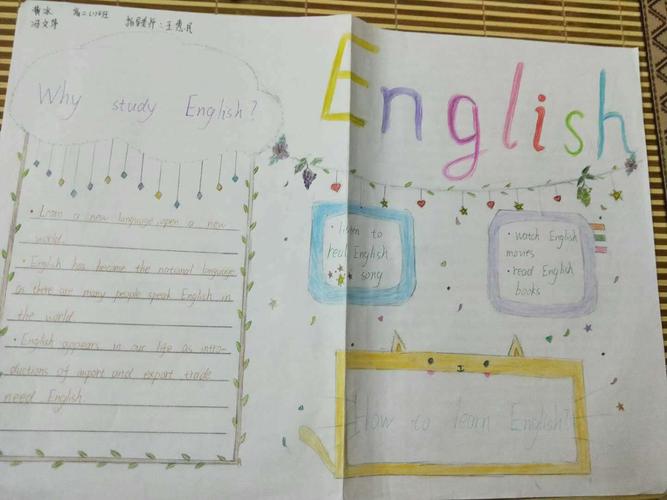 指导老师：王秀民
Why study English?
English
• Learn a new language open a new
world.
• English has become the national language
as there are many people speak English in
the world.
• English appears in our life as intro-
ductions of airport and export trade
need English.
• listen to
real English
song
• watch English
movies
• read English
books
How to learn English?